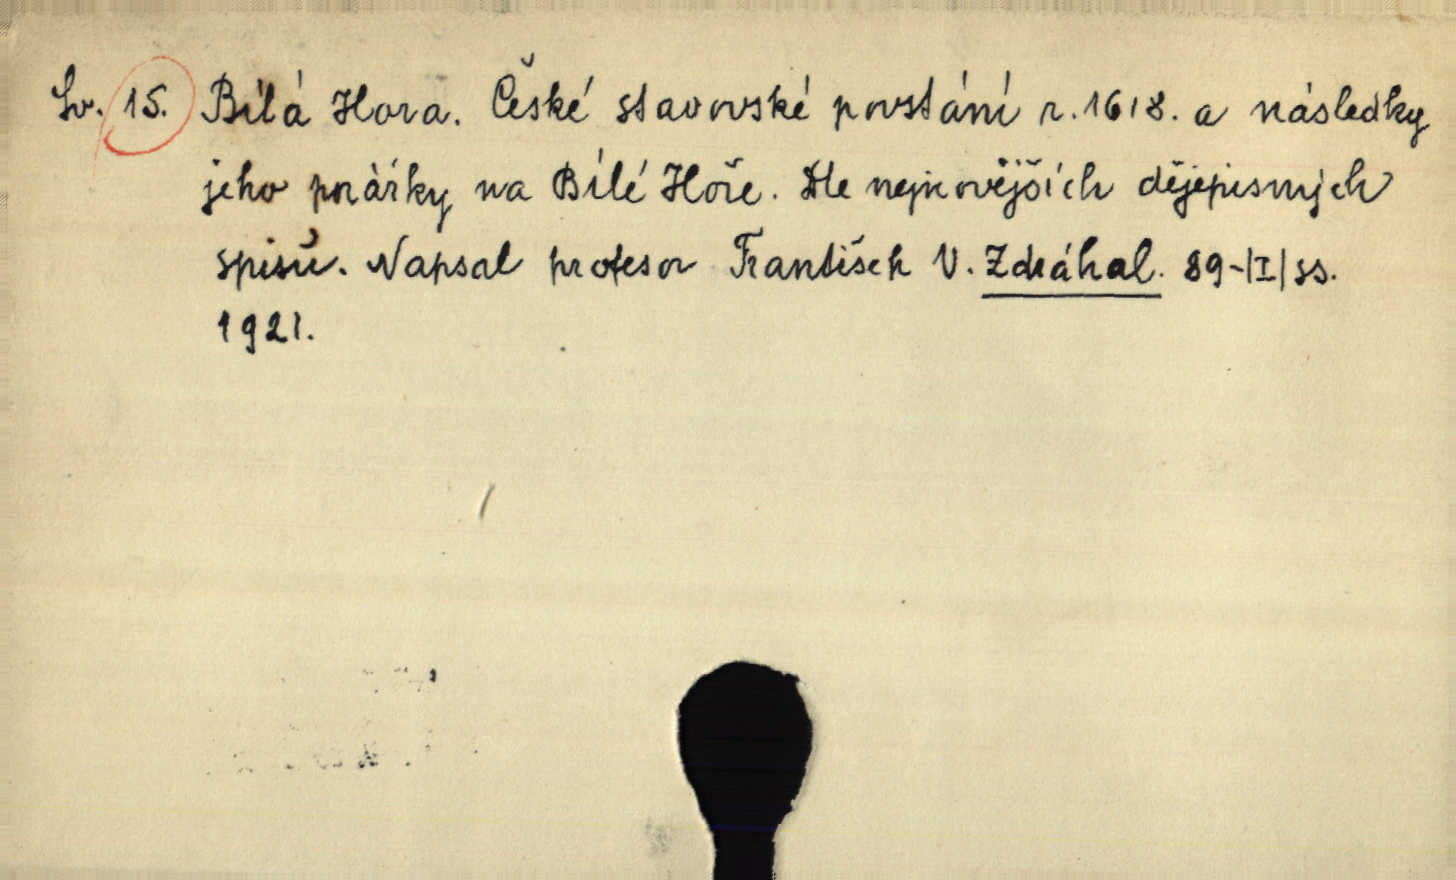 Sv. 15. Bílá Hora. České stavovské povstání r. 1618. a následky
jeho porážky na Bílé Hoře. Dle nejnovějších dějepisných
spisů. Napsal profesor František V. Zdráhal. 89-/I/ ss.
1921.